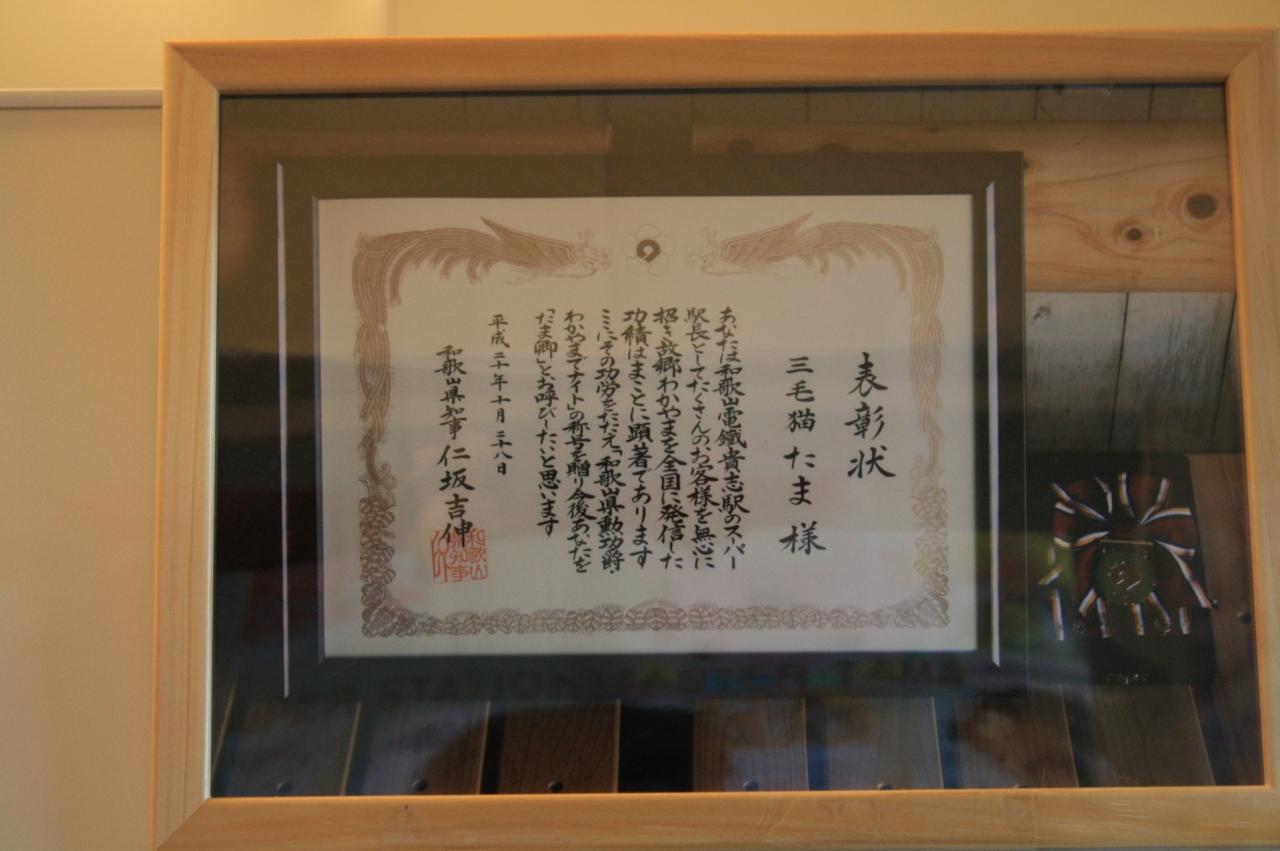 表彰状
三毛猫 たま 様
あなたは和歌山電鐵貴志駅のスーパー
駅長としてたくさんのお客様を無心に
招き故郷わかやまを全国に発信した
功績はまことに顕著であります
ここにその功労をたたえ「和歌山県勲功爵・
わかやまでナイト」の称号を贈り今後あなたを
「たま卿」とお呼びしたいと思います
平成二十年十月二十八日
和歌山県知事 仁坂吉伸